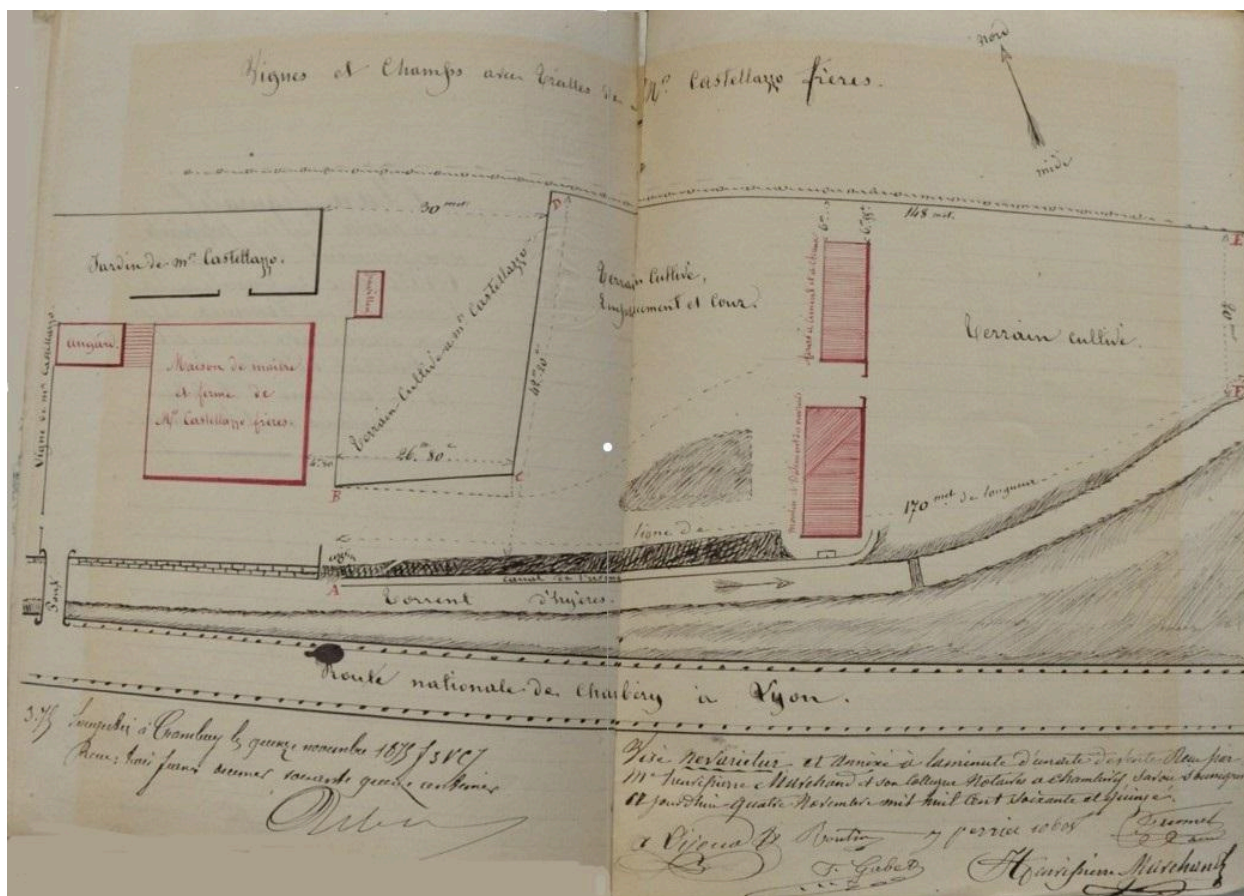 nord
midi
Vignes et Champs avec Treilles de Mrs Castellazzo frères.
30 met.
D
148 met.
E
Jardin de mr. Castellazzo.
Terrain Cultivé,
Emplacement et Cour.
Terrain cultivé.
angard.
Pavillon
Maison de maitre
et ferme de
Mrs Castellazzo frères.
Vigne de mr Castellazzo
Terrain Cultivé a mr Castellazzo
26m 80c
4m 50
B
C
F
170 met de longueur
ligne de
A
canal de l'usine
Torrent d'hyères.
Pont
Route nationale de Chambéry à Lyon.
3.75
Enregistré à Chambéry le quinze novembre 1875
Reçu: trois francs soixante quinze centimes
Visé nevarietur et annéxé à la minute d'un acte de vente Reçu par
Me Henri Pierre Marchand et son collègue Notaires a Chambéry Savoie
quatre Novembre mil huit cent soixante et quinze.
J. Gabet
Henri Pierre Marchand